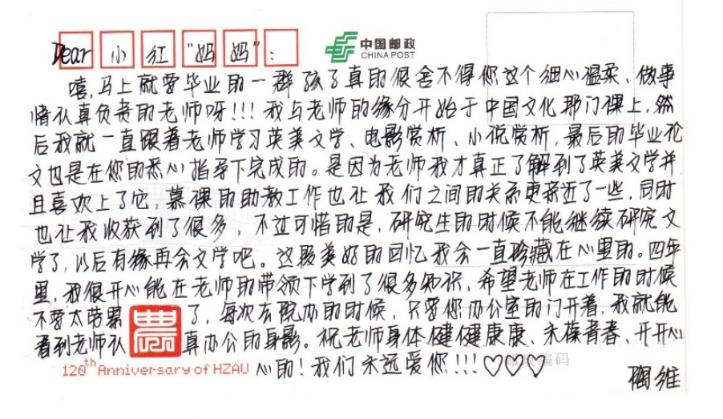 Dear 小红"妈妈":
中国邮政
CHINA POST
嘻,马上就要毕业的一群孩子真的很舍不得你这个细心温柔、做事
情认真负责的老师呀!!!我与老师的缘分开始于中国文化那门课上,然
后我就一直跟着老师学习英美文学、电影赏析、小说赏析,最后的毕业论
文也是在您的悉心指导下完成的。是因为老师我才真正了解到了英美文学并
且喜欢上了它,慕课的助教工作也让我们之间的关系更亲近了一些,同时
也让我收获到了很多,不过可惜的是,研究生的时候不能继续研究文
学了,以后有缘再会文学吧。这段美好的回忆我会一直珍藏在心里的。四年
里,我很开心能在老师的带领下学到了很多知识,希望老师在工作的时候
不要太劳累了,每次去院办的时候,只要您办公室的门开着,我就能
看到老师认真办公的身影。祝老师身体健健康康、永葆青春、开开心
心的!我们永远爱你!!!♡♡♡
邮政编码
120th Anniversary of HZAU
陶维